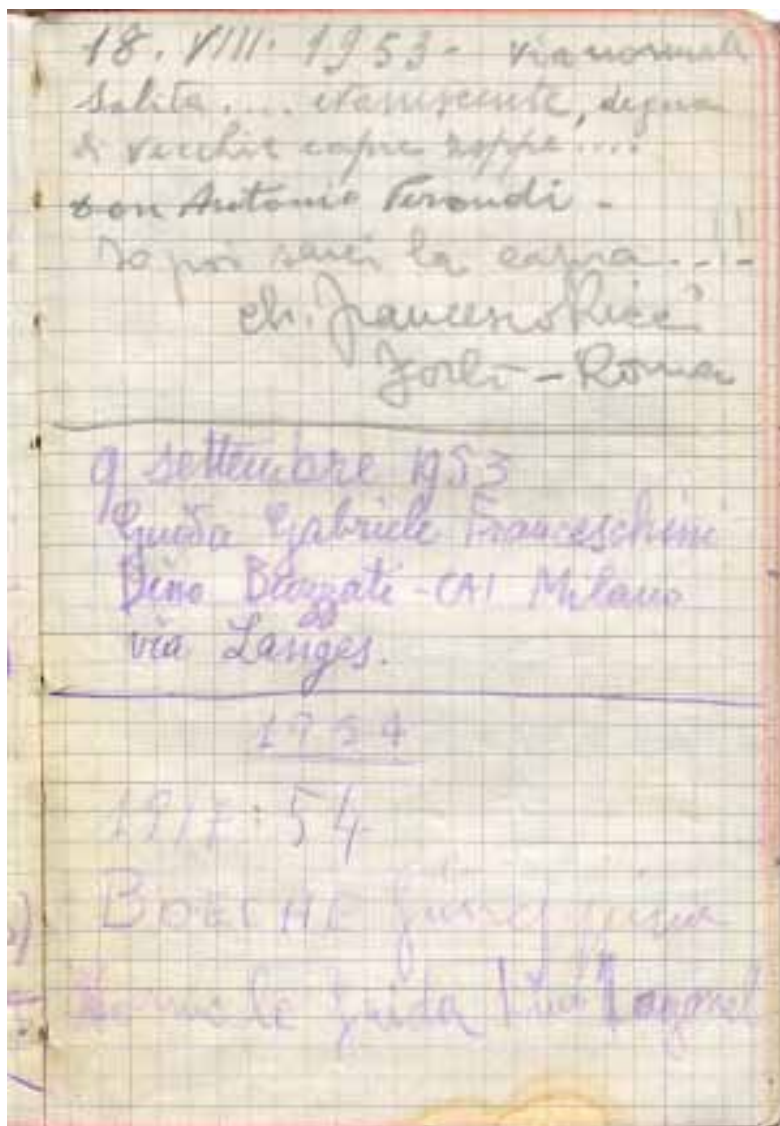 18. VIII. 1953 - via normale
Salita.... evanescente, degna
di vecchie capre zoppe....
don Antonio Ferondi -
Io poi sarei la capra...!!
ch. Francesco Ricci
Forlì - Roma
9 settembre 1953
Guida Gabriele Franceschini
Dino Buzzati - CAI Milano
via Langes.
1954
54
Guida